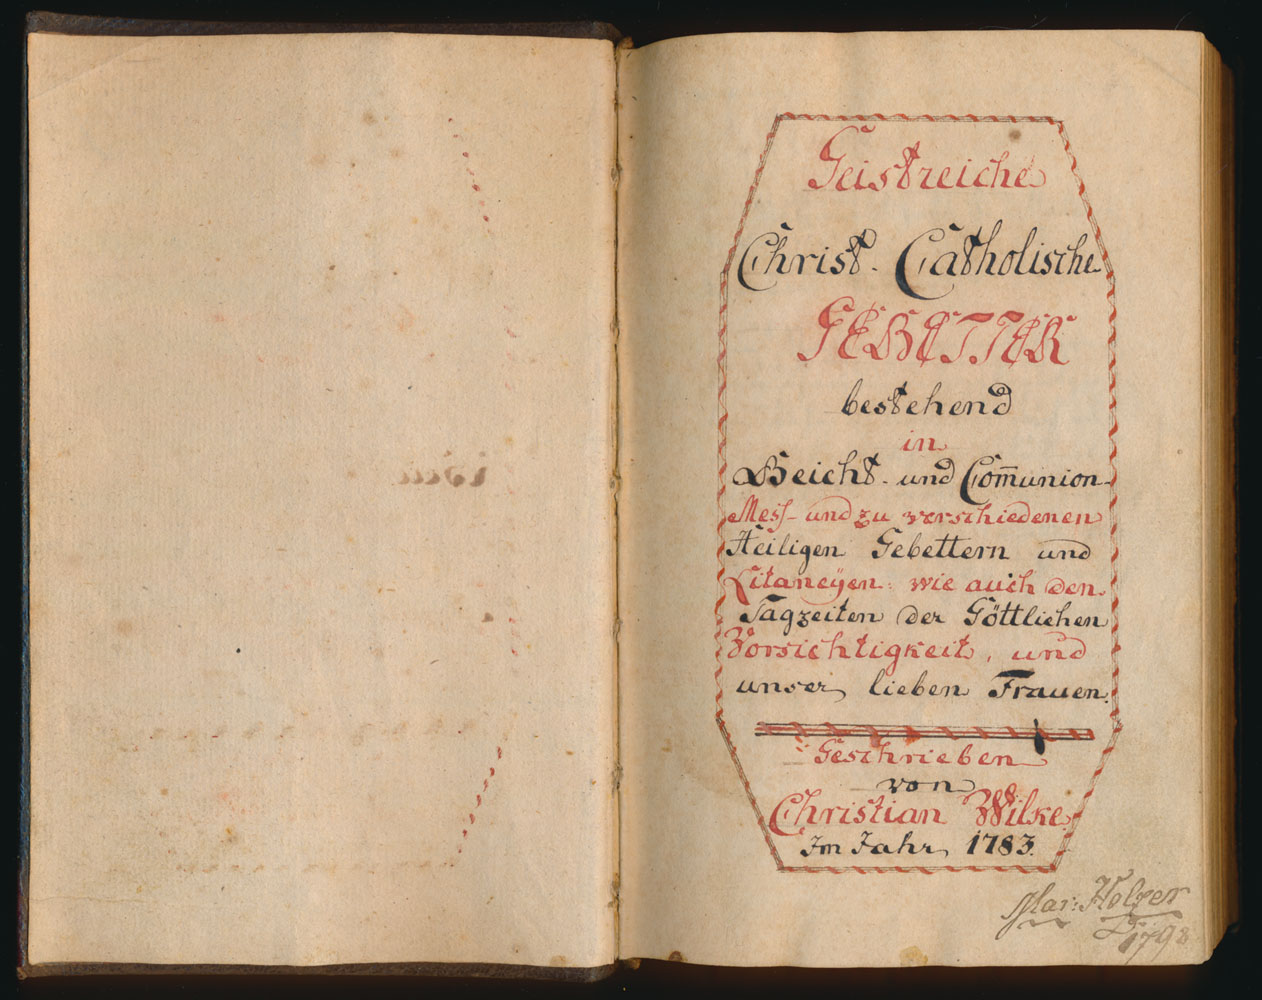 Geistreiche
Christ. Catholische
GEBETTER
bestehend
in
Beicht- und Com̅union-
Mess- und zu verschiedenen
Heiligen Gebettern und
Litaneÿen: wie auch den
Tagzeiten der Göttlichen
Vorsichtigkeit, und
unser lieben Frauen.
Geschrieben
von
Christian Wilke
Im Jahr 1783.
Mar: Holzer
1798